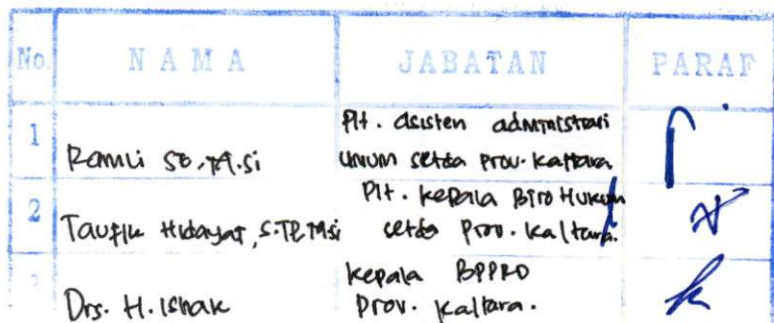 No. NAMA JABATAN PARAF
1 Ramli SE, M.si Plt. asisten administrasi
umum setda prov. Kaltara
2 Taufik Hidayat, S.TP, M.si Plt. Kepala Biro Hukum
setda prov. Kaltara.
3 Drs. H. Ishak Kepala BPPRD
prov. Kaltara.